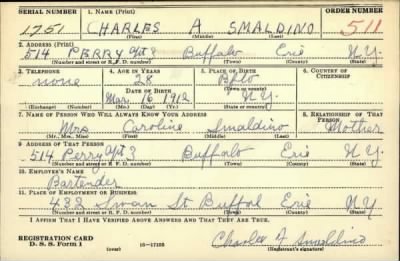 SERIAL NUMBER 1. NAME (Print) ORDER NUMBER
1751 CHARLES A SMALDINO 511
(First) (Middle) (Last)
2. ADDRESS (Print)
514 PERRY Apt 3 Buffalo Erie N.Y.
(Number and street or R. F. D. number) (Town) (County) (State)
3. TELEPHONE 4. AGE IN YEARS 5. PLACE OF BIRTH 6. COUNTRY OF CITIZENSHIP
none 28 Bflo
DATE OF BIRTH (Town or county)
Mar 16 1912 N.Y.
(Exchange) (Number) (Mo.) (Day) (Yr.) (State or country)
7. NAME OF PERSON WHO WILL ALWAYS KNOW YOUR ADDRESS 8. RELATIONSHIP OF THAT PERSON
Mrs Caroline Smaldino Mother
(Mr., Mrs., Miss) (First) (Middle) (Last)
9. ADDRESS OF THAT PERSON
514 Perry Apt 3 Buffalo Erie N.Y.
(Number and street or R. F. D. number) (Town) (County) (State)
10. EMPLOYER'S NAME
Bartender
11. PLACE OF EMPLOYMENT OR BUSINESS
432 Swan St Buffal Erie N.Y.
(Number and street or R. F. D. number) (Town) (County) (State)
I AFFIRM THAT I HAVE VERIFIED ABOVE ANSWERS AND THAT THEY ARE TRUE.
REGISTRATION CARD
D. S. S. Form 1 (over) 16—17105 Charles A Smaldino
(Registrant's signature)